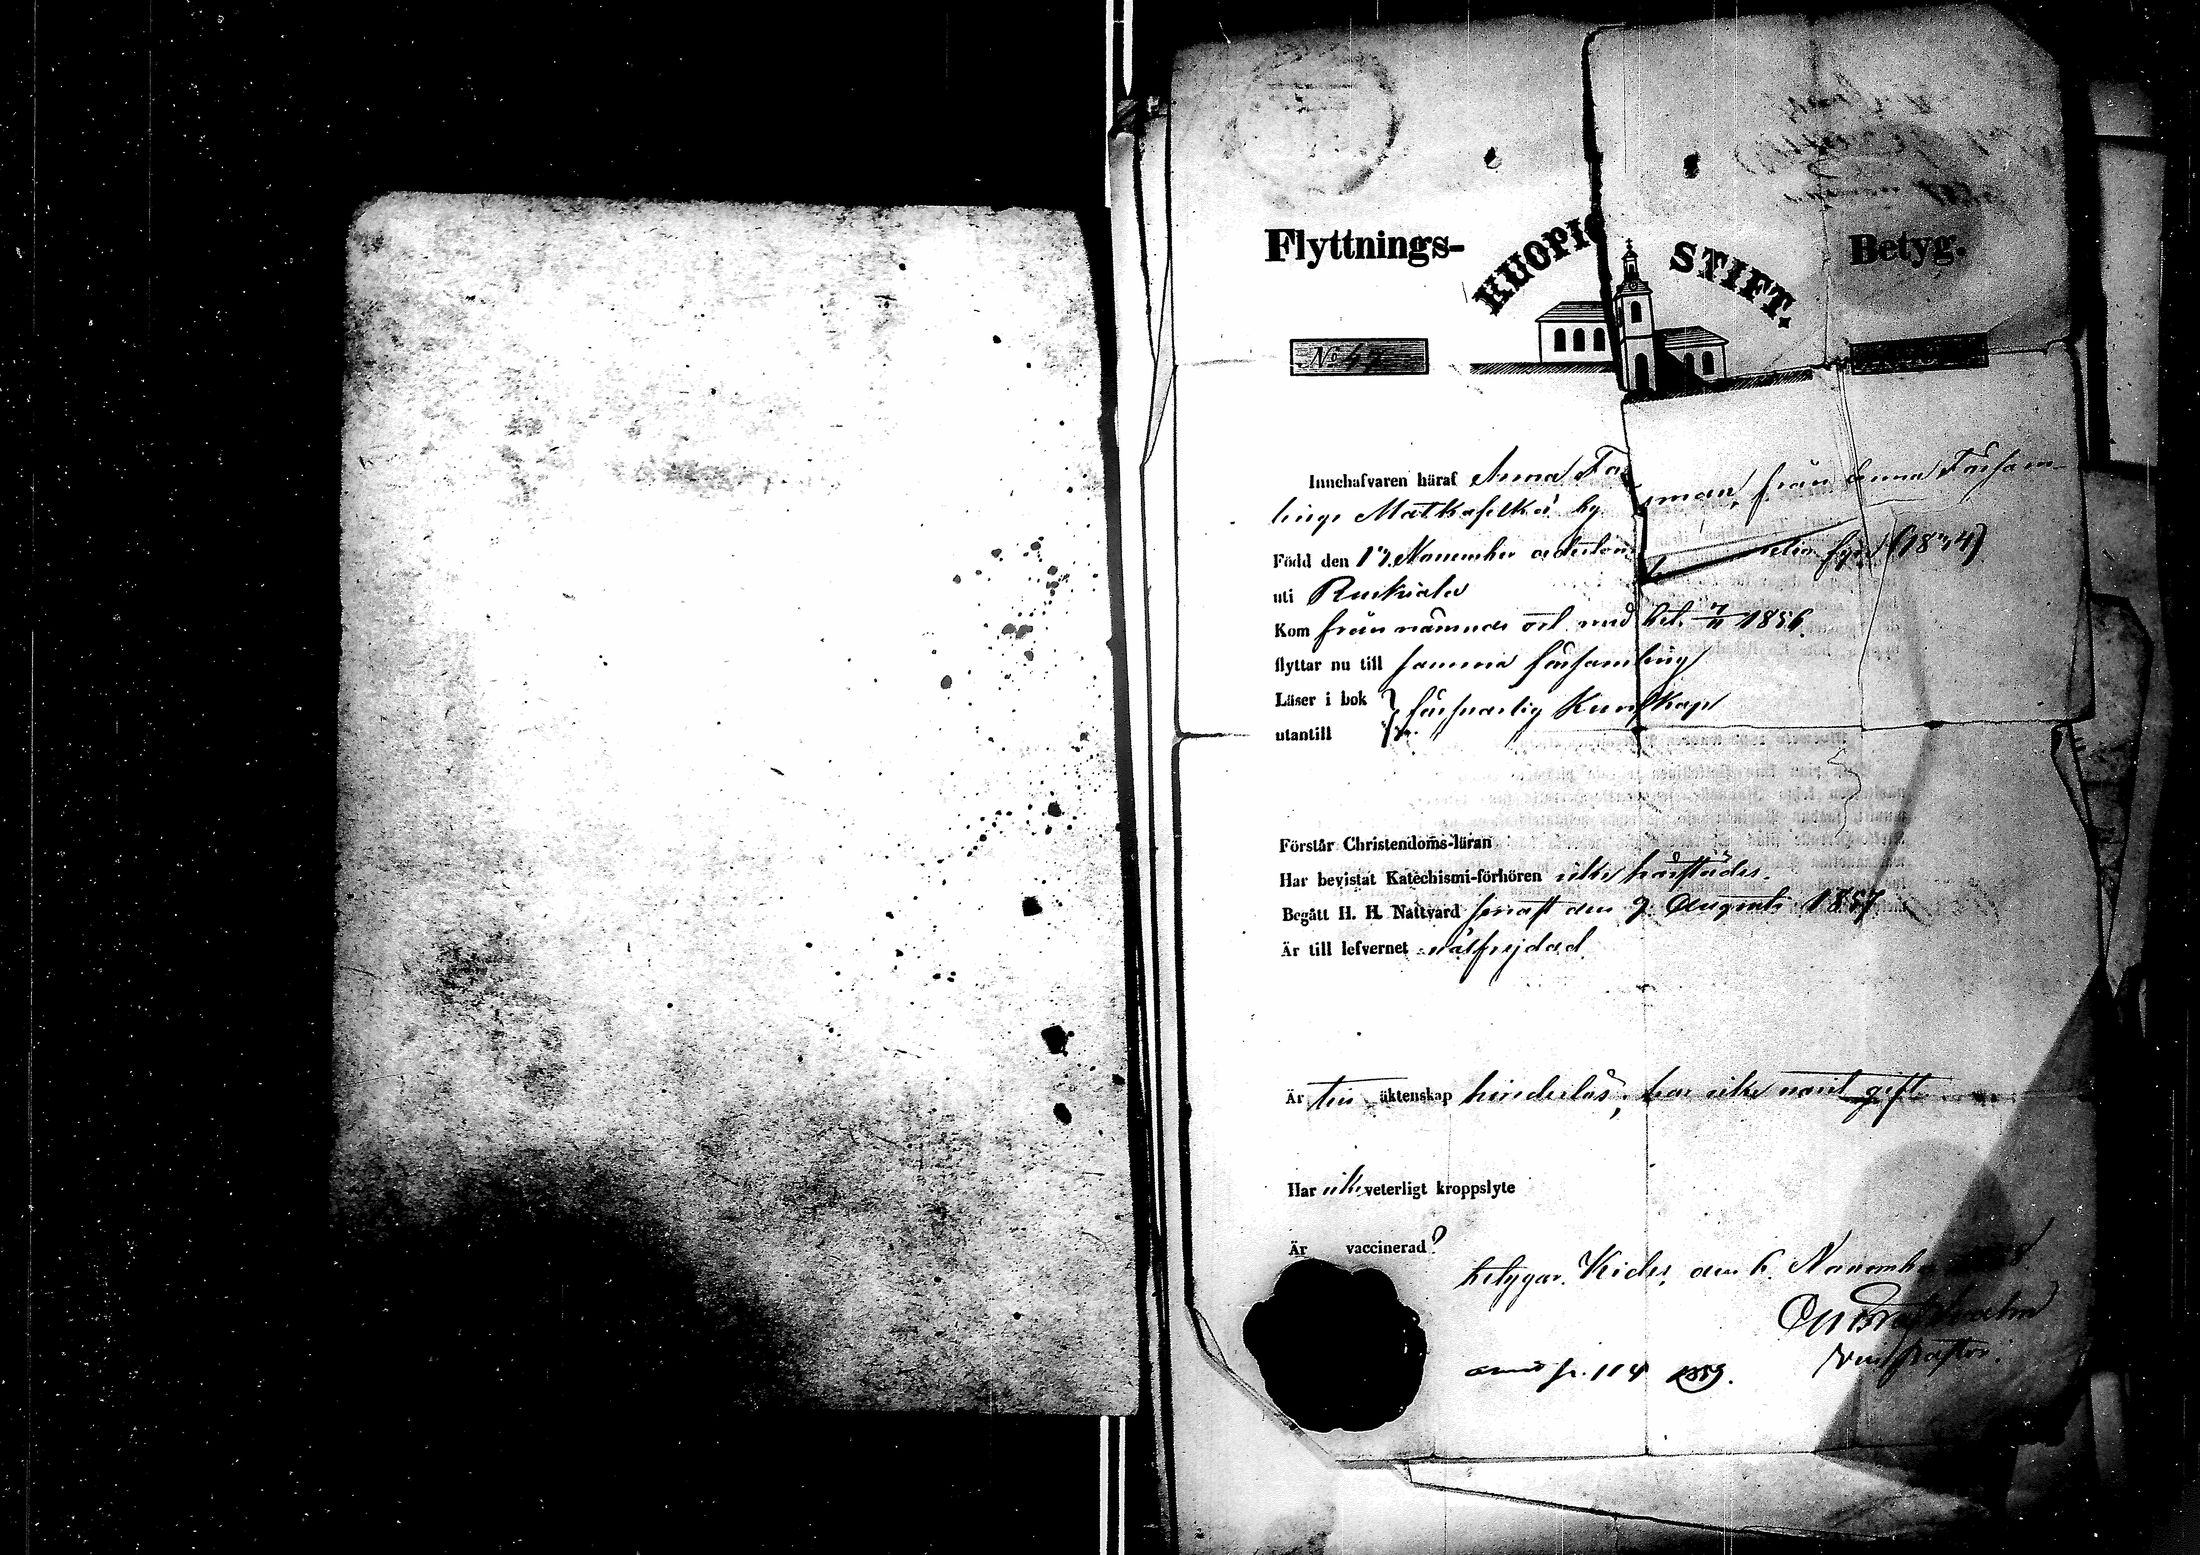 Flyttnings- KUOPIO STIFT. Betyg.
No 47
Innehafvaren häraf Anna från denna Försam-
lings Matkaselkä by
Född den 17 November adertonhundra (1834)
uti Ruskiala
Kom från nämnde ort med bet. 7/11 1856.
flyttar nu till samma församling
Läser i bok
försvarlig Kunskap
utantill
Förstår Christendoms-läran
Har bevistat Katechismi-förhören icke härstädes.
Begått H. H. Nattvard senast den 9 Augusti 1857
Är till lefvernet välfrejdad.
Är till äktenskap hinderlös, har icke varit gift
Har icke veterligt kroppslyte
Är vaccinerad?
betygar. Kides, den 6. November
Vice pastor.
p. 114 1859.